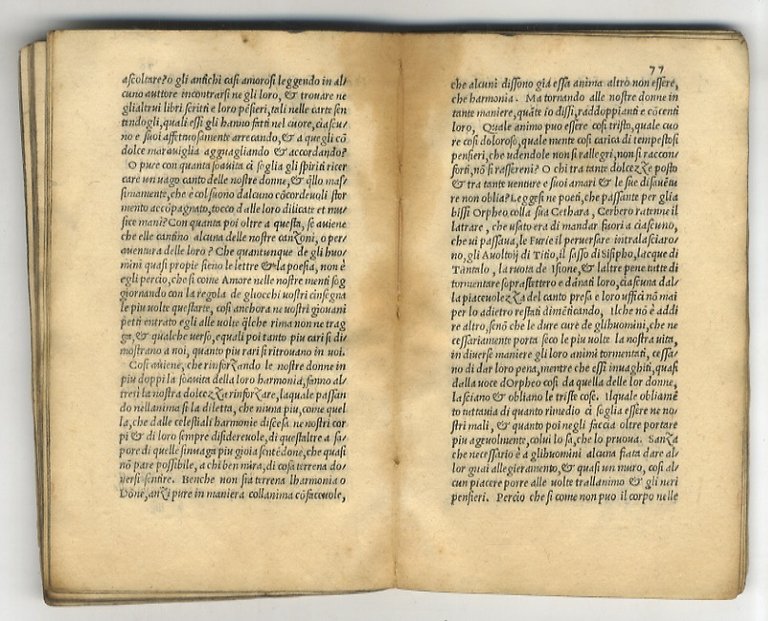 ascoltare? o gli antichi casi amorosi leggendo in al/
cuno auttore incontrarsi ne gli loro, & trouare ne
glialtri libri scritti e loro pēsieri, tali nelle carte sen
tendogli, quali essi gli hanno fatti nel cuore, ciascu/
no e suoi affettuosamente arrecando, & a quegli cō
dolce marauiglia agguagliando & accordando?
O pure con quanta soauita ci soglia gli spiriti ricer
care un uago canto delle nostre donne, & q̄llo mas/
simamente, che è col suono dalcuno cōcordeuoli stor
mento accōpagnato, tocco dalle loro dilicate et mu/
sice mani? Con quanta poi oltre a questa, se auiene
che elle cantino alcuna delle nostre canzoni, o per
auentura delle loro? Che quantunque de gli huo/
mini quasi propie sieno le lettre & la poesia, non è
egli percio, che si come Amore nelle nostre menti sog
giornando con la regola de gliocchi uostri cinsegna
le piu uolte questarte, cosi anchora ne uostri giouani
petti entrato egli alle uolte q̄lche rima non ne trag
ga, & qualche verso, equali poi tanto piu cari si di/
mostrano a noi, quanto piu rari si ritrouano in uoi.
Cosi auiene, che rinforzando le nostre donne in
piu doppi la soauita della loro harmonia, fanno al/
tresi la nostra dolcezza rinforzare, laquale passan
do nellanima si la diletta, che niuna piu, come quel
la, che dalle celestiali harmonie discesa ne nostri cor
pi & di loro sempre disiderevole, di questaltre a sa/
pore di quelle sinuaga piu gioia sentēdone, che quasi
nō pare possibile, a chi ben mira, di cosa terrena do/
versi sentire. Benche non sia terrena lharmonia o
Dōne, anzi pure in maniera collanima cōfaceuole,
77
che alcuni dissono gia essa anima altro non essere,
che harmonia. Ma tornando alle nostre donne in
tante maniere, quāte io dissi, raddoppianti e cōcenti
loro, Quale animo puo essere cosi tristo, quale cuo
re cosi doloroso, quale mente cosi carica di tempestosi
pensieri, che udendole non si rallegri, non si raccon/
forti, nō si rassereni? O chi tra tante dolcezze posto
& tra tante uenture e suoi amari & le sue disauētu
re non oblia? Leggesi ne poeti, che passante per glia
bissi Orpheo colla sua Cethara, Cerbero ratenne il
latrare, che usato era di mandar fuori a ciascuno,
che ui passaua, le Furie il peruersare intralasciaro/
no, gli Auoltoij di Titio, il sasso di Sisipho, lacque di
Tantalo, la ruota de Isione, & laltre pene tutte di
tormentare soprastettero e dānati loro, ciascuna dal/
la piaceuolezza del canto presa e loro ufficì nō mai
per lo adietro restati dimēticando, Ilche nō è addi
re altro, senō chè le dure cure de glihuomini, che ne
cessariamente porta seco le piu uolte la nostra uita,
in diuerse maniere gli loro animi tormentati, cessa/
no di dar loro pena, mentre che essi inuaghiti, quasi
dalla uoce dOrpheo cosi da quella delle lor donne,
lasciano & obliano le triste cose. Ilquale obliamē
to tuttauia di quanto rimedio ci soglia essere ne no/
stri mali, & quanto poi negli faccia oltre portare
piu ageuolmente, colui lo sa, che lo pruoua. Sanza
che necessario è a glihuomini alcuna fiata dare al/
lor guai allegieramento, & quasi un muro, cosi al/
cun piacere porre alle uolte trallanimo & gli neri
pensieri. Percio che si come non puo il corpo nelle